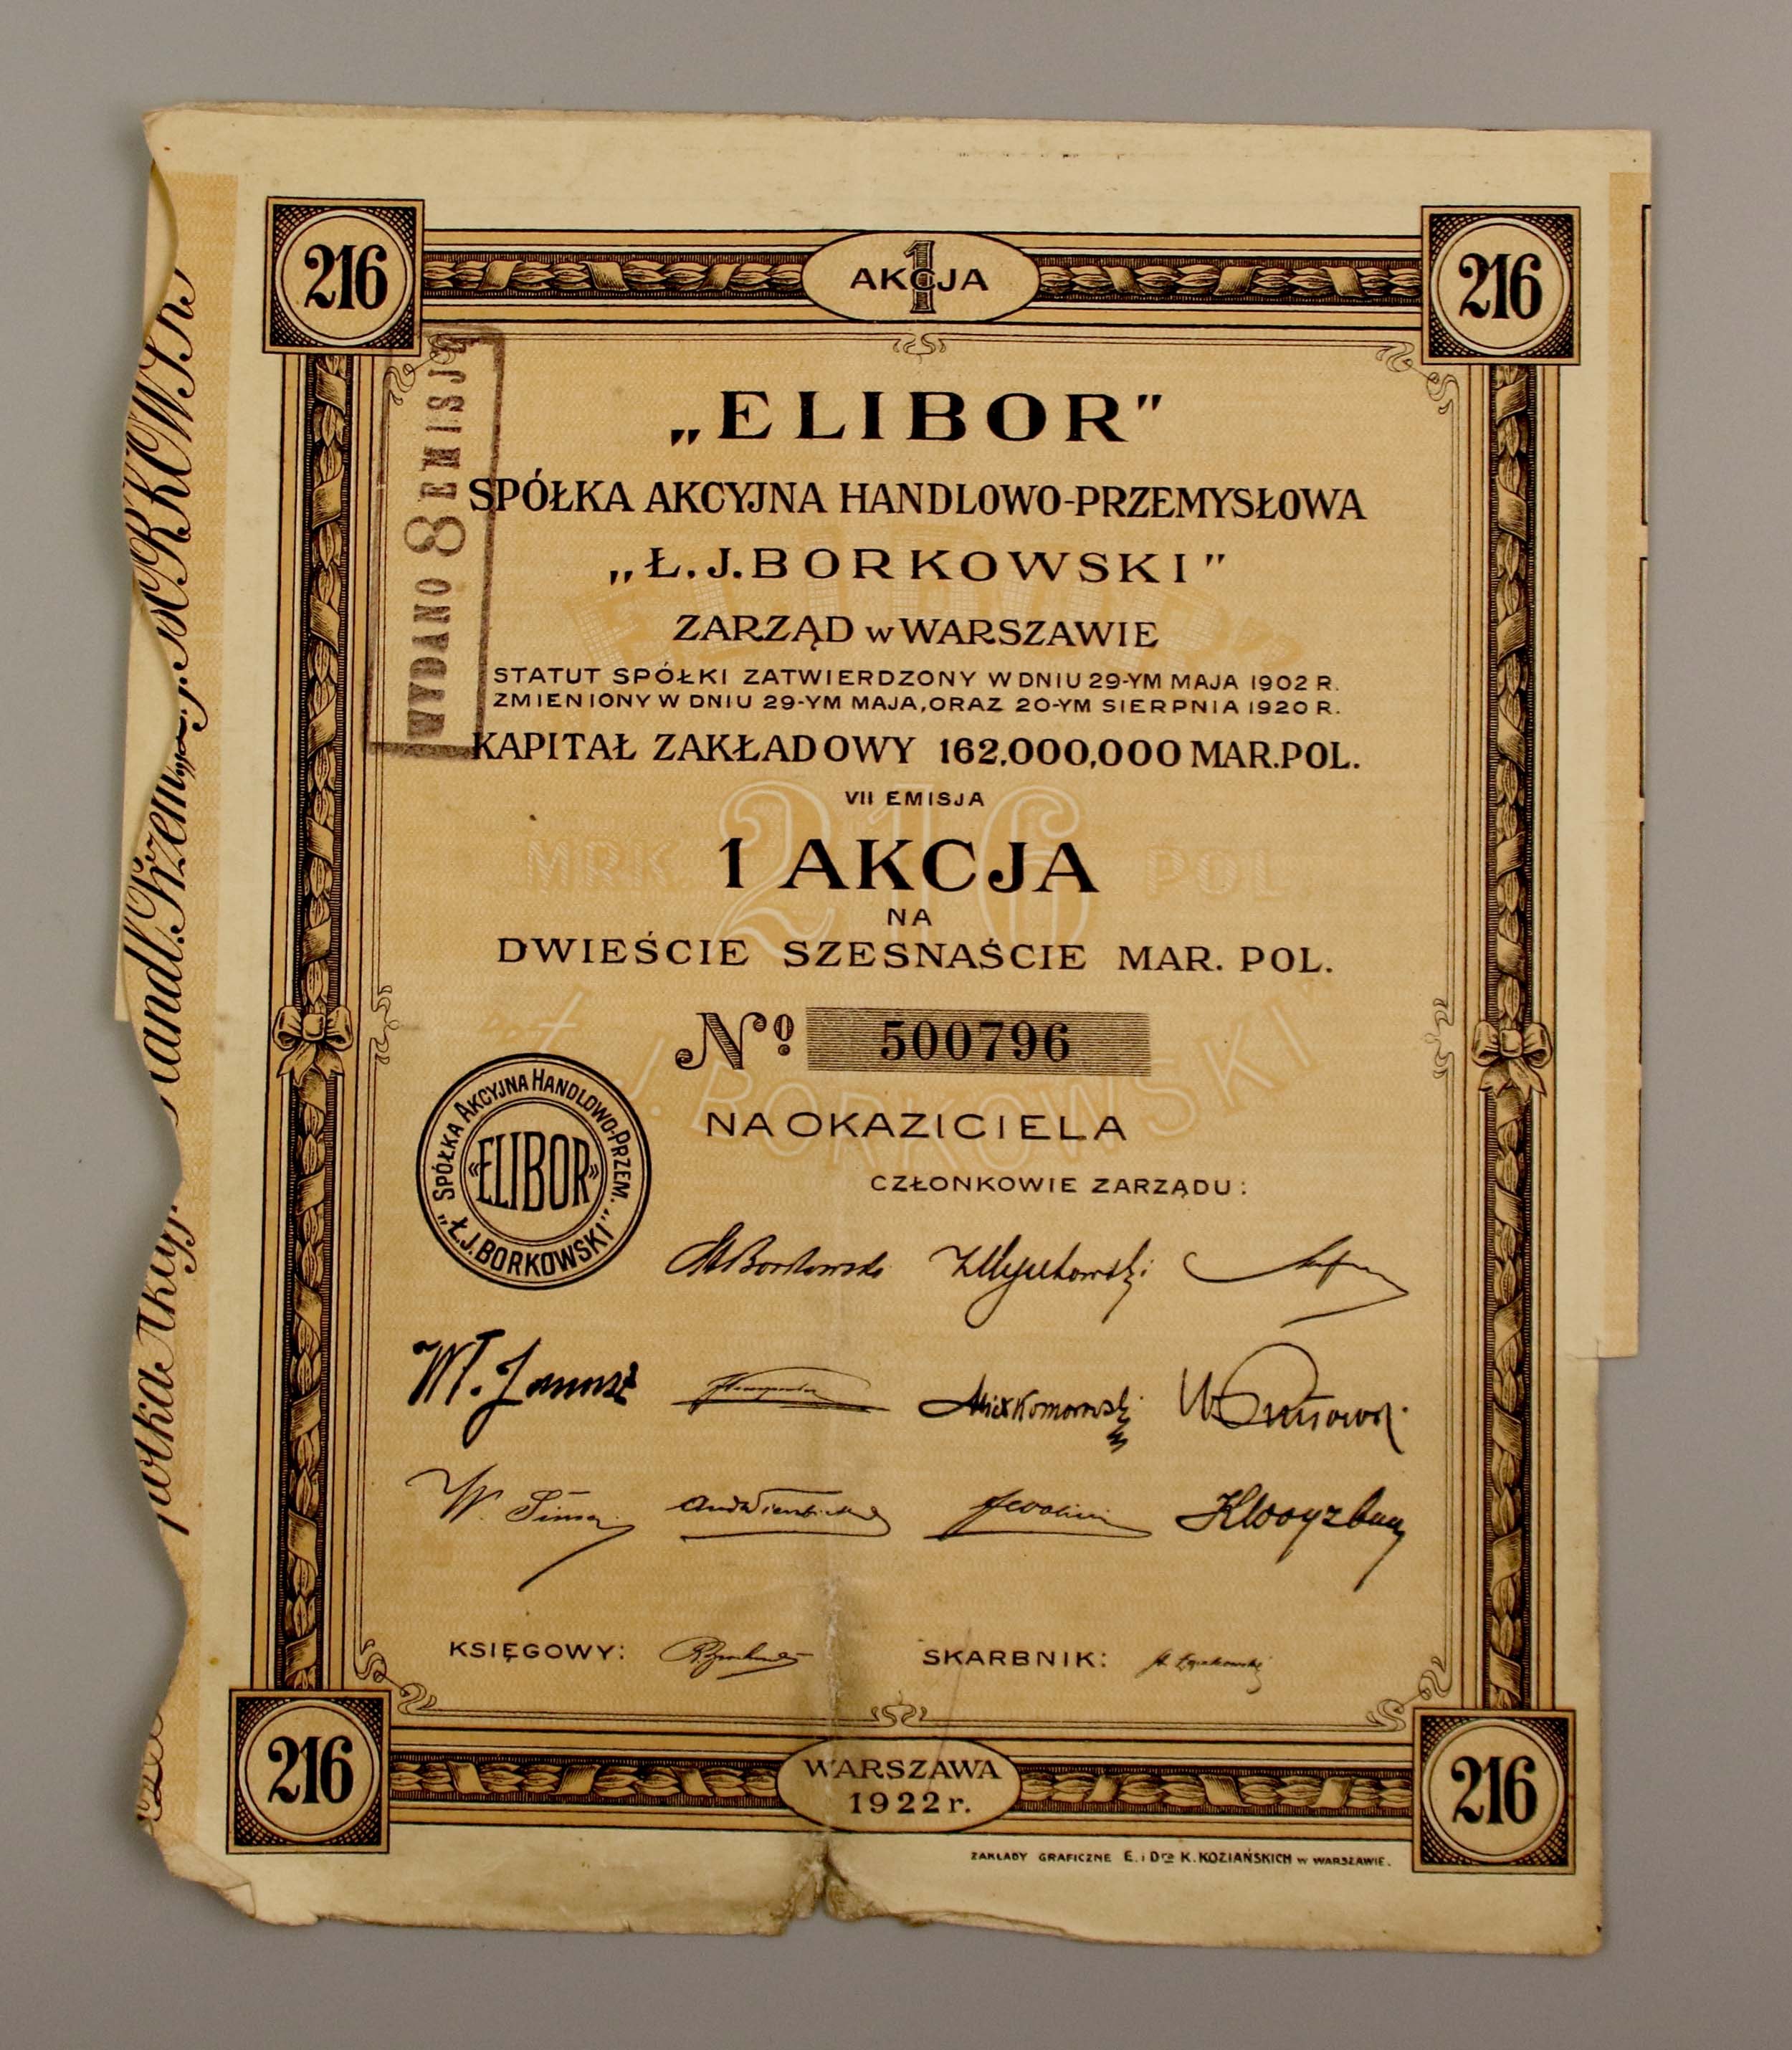 216
1
AKCJA
216
WYDANO 8 EMISJ
„ELIBOR"
SPÓŁKA AKCYJNA HANDLOWO-PRZEMYSŁOWA
„Ł. J. BORKOWSKI"
ZARZĄD w WARSZAWIE
STATUT SPÓŁKI ZATWIERDZONY W DNIU 29-YM MAJA 1902 R.
ZMIENIONY W DNIU 29-YM MAJA, ORAZ 20-YM SIERPNIA 1920 R.
KAPITAŁ ZAKŁADOWY 162,000,000 MAR. POL.
VII EMISJA
1 AKCJA
NA
DWIEŚCIE SZESNAŚCIE MAR. POL.
„ELIBOR"
MRK. 216 POL.
„Ł. J. BORKOWSKI"
No 500796
NA OKAZICIELA
SPÓŁKA AKCYJNA HANDLOWO-PRZEM.
«ELIBOR»
„Ł.J. BORKOWSKI"
CZŁONKOWIE ZARZĄDU:
KSIĘGOWY:
SKARBNIK:
216
WARSZAWA
1922 r.
216
ZAKŁADY GRAFICZNE E. i Dra K. KOZIAŃSKICH w WARSZAWIE.